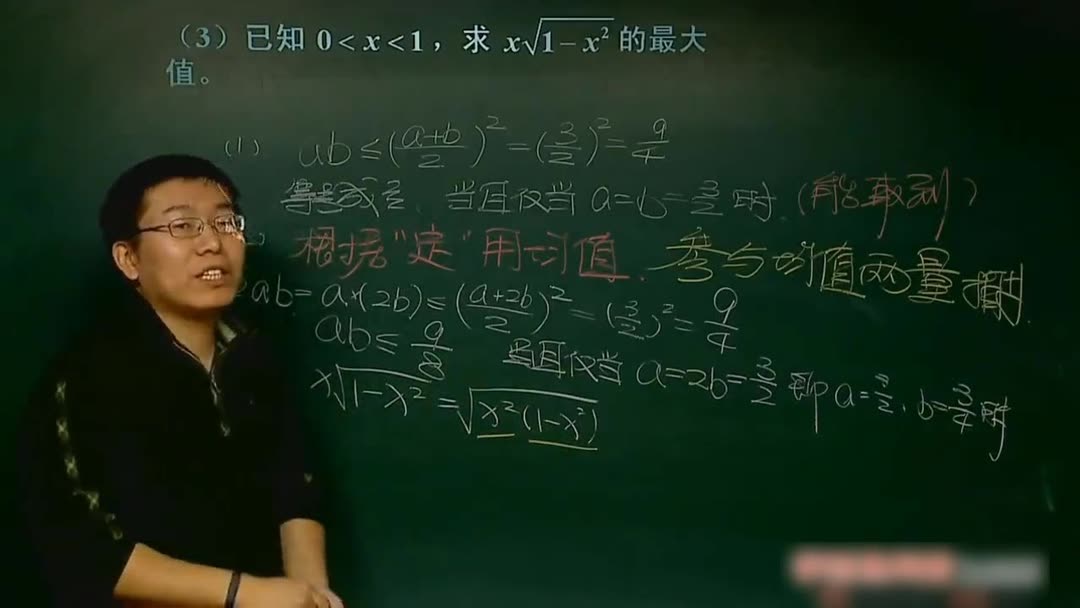 （3）已知 0 < x < 1，求 x√(1－x²) 的最大
值。
(1) ab≤(a+b/2)²=(3/2)²=9/4
等号成立 当且仅当 a=b=3/2 时.(能取到)
根据“定”用均值. 参与均值两量
ab=a×(2b)≤(a+2b/2)²=(3/2)²=9/4
ab≤9/8 当且仅当 a=2b=3/2 即 a=3/2, b=3/4 时
x√(1-x²)=√(x²(1-x²))